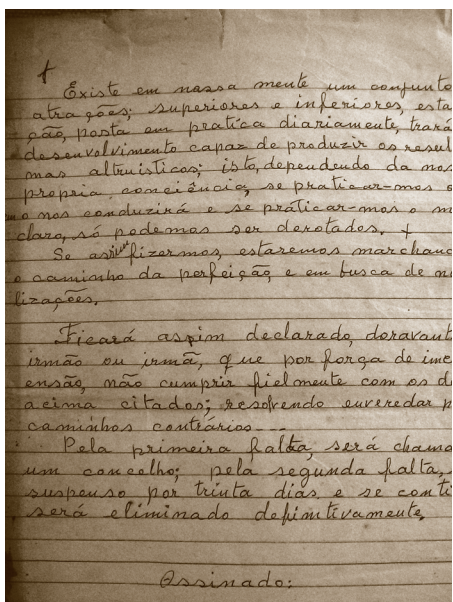 +
Existe em nossa mente um conjunto
atrações; superiores e inferiores, esta
ção, posta em pratica diariamente, trará
desenvolvimento capaz de produzir os resul
mas altruisticos; isto, dependendo da nos
propria conciência, se praticar-mos o
o nos conduzirá e se práticar-mos o m
claro, só podemos ser derotados. +
Se assim fizermos, estaremos marchand
o caminho da perfeição, e em busca de no
lizações.
Ficará assim declarado, doravant
irmão ou irmã, que por força de ime
ensão, não cumprir fielmente com os de
acima citados; resolvendo enveredar p
caminhos contrários---
Pela primeira falta, será chama
um concelho; pela segunda falta,
suspenso por trinta dias, e se conti
será eliminado definitivamente.
Assinado: